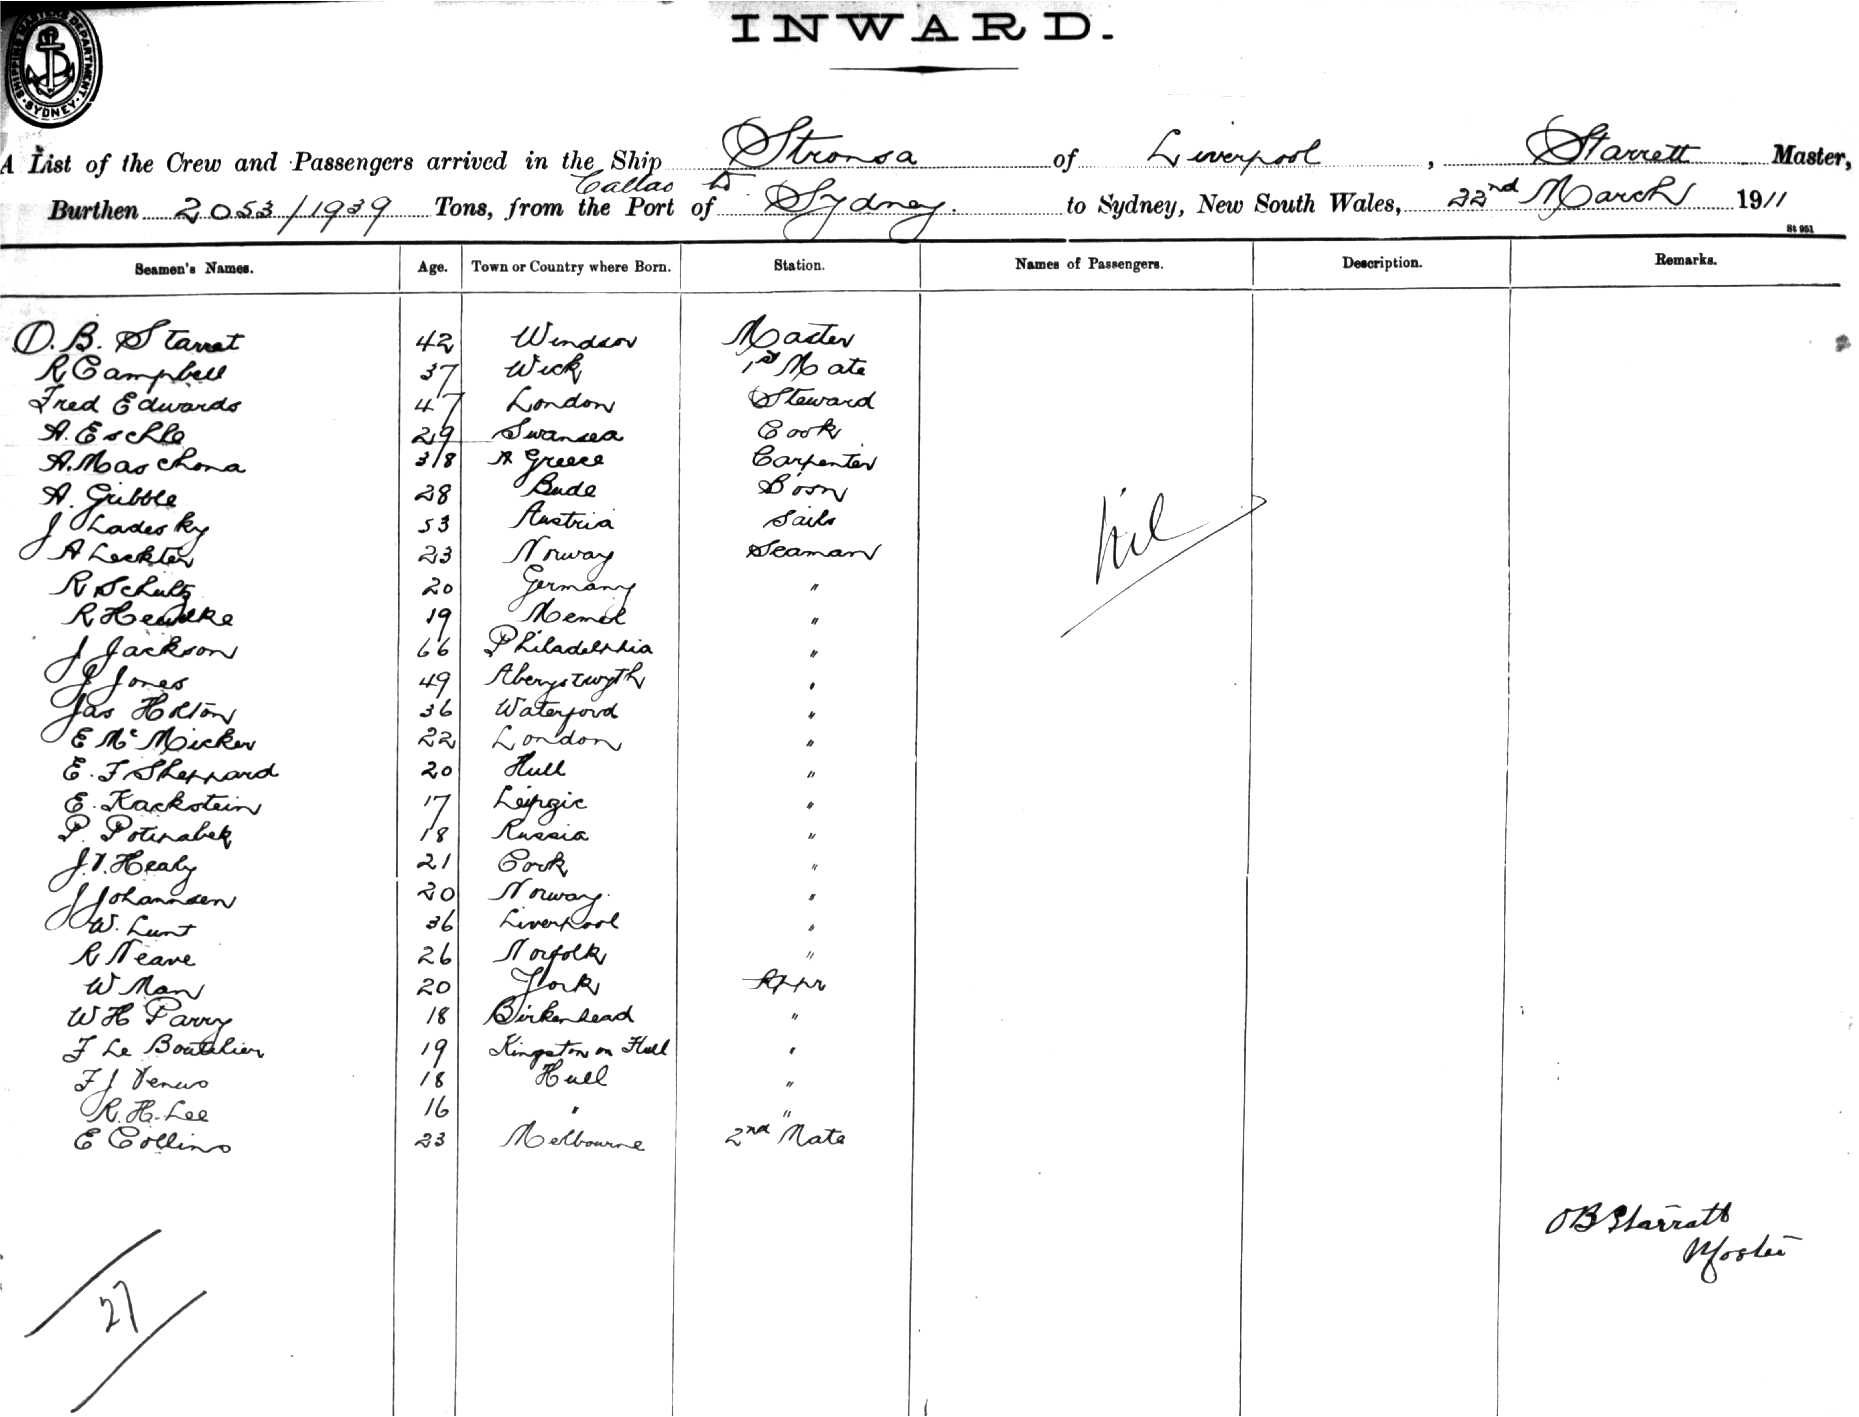 INWARD.
SHIPPING MASTERS DEPARTMENT SYDNEY
A List of the Crew and Passengers arrived in the Ship Stronsa of Liverpool, Starrett Master,
Callao to
Burthen 2053/1939 Tons, from the Port of Sydney. to Sydney, New South Wales, 22nd March 1911
St 951
Seamen's Names. Age. Town or Country where Born. Station. Names of Passengers. Description. Remarks.
O. B. Starrat 42 Windsor Master
R Campbell 37 Wick 1st Mate
Fred Edwards 47 London Steward
A. Eschle 29 Swansea Cook
A. Maschona 38 A Greece Carpenter
A. Gribble 28 Bude Bosn
J Ladesky 53 Austria Sails
A Leckter 23 Norway Seaman
R Schultz 20 Germany "
R 19 Memel "
J Jackson 66 Philadelphia "
J Jones 49 Aberystwyth "
Jas Holton 36 Waterford "
E McMicker 22 London "
E. F Sheppard 20 Hull "
E. Kackstein 17 Leipzic "
P. 18 Russia "
J. V. Healy 21 Cork "
J Johannsen 20 Norway. "
W. Lunt 36 Liverpool "
R Neave 26 Norfolk "
W Man 20 York Appr
W H Parry 18 Birkenhead "
F Le Boutelier 19 Kingston on Hull "
F J Venus 18 Hull "
R. H. Lee 16 " "
E Collins 23 Melbourne 2nd Mate
Nil
O B Starratt
Master
27